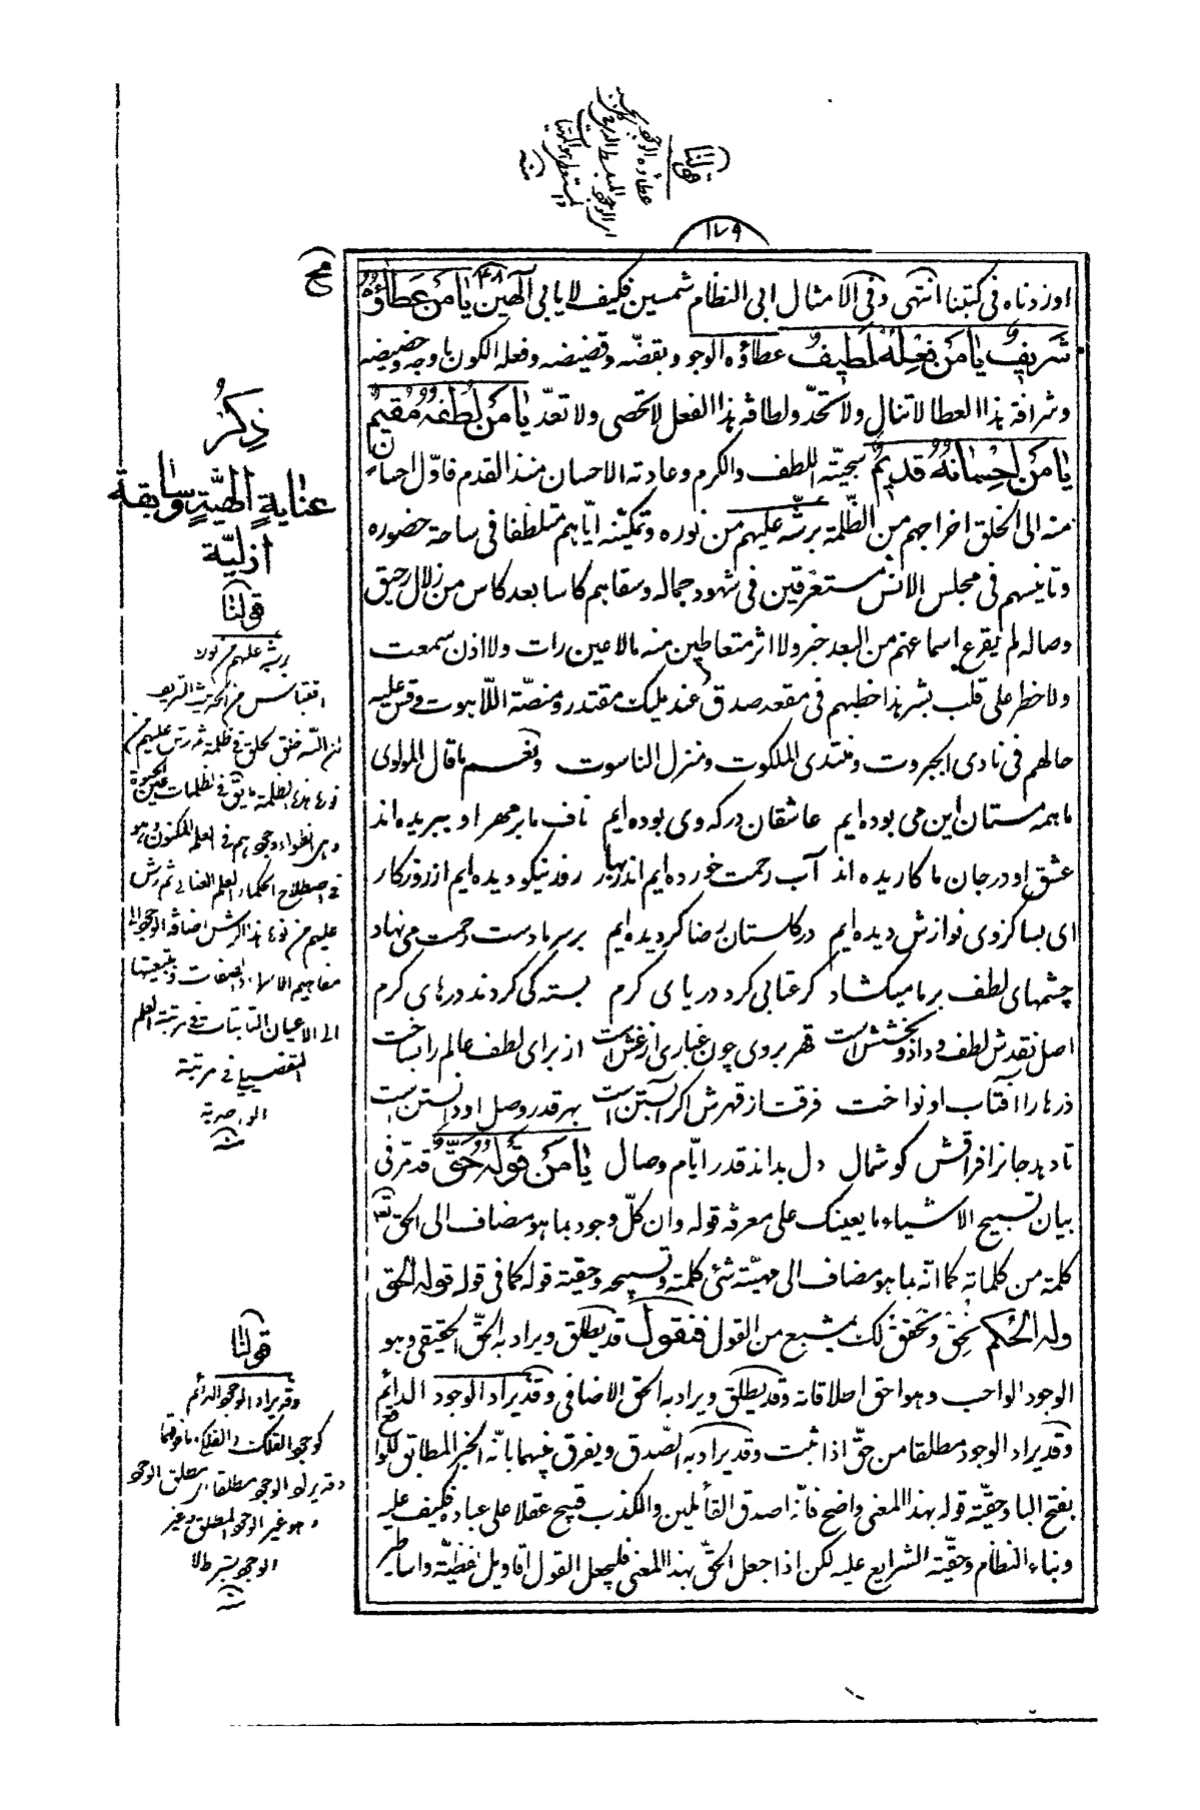 قولنا
عطاؤه الوجود
١٧٩
مح
اوردناه فی کتبنا انتهی وفی الامثال ابی النظام شمسین فکیف لا یابی الٓهین ۴۸ یا من عطاؤه
شریف یا من فعله لطیف عطاؤه الوجود بقضّه وقضیضه وفعله الکون باوجه وحضیضه
وشرافة هذا العطا لا تنال ولا تحدّ ولطافة هذا الفعل لا تحصی ولا تعدّ یا من لطفه مقیم
یا من احسانه قدیم سجیّته اللطف والکرم وعادته الاحسان منذ القدم فاوّل احسان
منه الی الخلق اخراجهم من الظّلمة برشّه علیهم من نوره وتمکینه ایّاهم متلطفا فی ساحة حضوره
وتانیسهم فی مجلس الانس مستغرقین فی شهود جماله وسقاهم کاسا بعد کاس من زلال رحیق
وصاله لم یقرع اسماعهم من البعد خبر ولا اثر متعاطین منه ما لا عین رات ولا اذن سمعت
ولا خطر علی قلب بشر هذا خطبهم فی مقعد صدق عند ملیک مقتدر ومنصّة اللّاهوت وقس علیه
حالهم فی نادی الجبروت ومنتدی الملکوت ومنزل الناسوت ونعم ما قال المولوی
ما همه مستان این می بوده ایم عاشقان درکه وی بوده ایم ناف ما بر مهر او ببریده اند
عشق او در جان ما کاریده اند آب رحمت خورده ایم اندر بهار روز نیکو دیده ایم از روزکار
ای بسا کز وی نوازش دیده ایم در کلستان رضا کردیده ایم بر سر ما دست رحمت می نهاد
چشمهای لطف بر ما میکشاد کر عتابی کرد دریای کرم بسته کی کردند درهای کرم
اصل نقدش لطف و داد و بخشش است قهر بر وی چون غباری از غش است از برای لطف عالم را بساخت
ذرها را آفتاب او نواخت فرقت از قهرش اکر آبستن است بهر قدر وصل او دانستن است
تا دهد جانرا فراقش کوشمال دل بداند قدر ایّام وصال یا من قوله حقّ قد مرّ فی
بیان تسبیح الاشیاء ما یعینک علی معرفة قوله وان کلّ وجود بما هو مضاف الی الحق تع
کلمة من کلماته کما انّه بما هو مضاف الی مهیّته شیٔ کلمة وتسبیحه وحقیّة قوله کما فی قوله قوله الحق
وله الحکم نحقّ ونحقق لک بمشبع من القول فنقول قد یطلق ویراد به الحقّ الحقیقی وهو
الوجود الواجب وهو احق اطلاقاته وقد یطلق ویراد به الحق الاضافی وقد یراد الوجود الدائم
وقد یراد الوجود مطلقا من حقّ اذا ثبت وقد یراد به الصّدق ویفرق بینهما بانّه الخبر المطابق للواقع
بفتح الباء وحقیّة قوله بهذا المعنی واضح فانّه اصدق القائلین والکذب قبیح عقلا علی عباده فکیف علیه
وبناء النظام وحقیّة الشرایع علیه لکن اذا جعل الحقّ بهذا المعنی فلیجعل القول اقاویل لفظیّة واساطیر
ذکر
عنایة الهیّة وسابقة
ازلیّة
قولنا
برشه علیهم من نوره
اقتباس من الحدیث الشریف
ان اللّه خلق الخلق فی ظلمة ثم رش علیهم من
علیهم من نوره هذا الرش اضافة الوجود الی
مفاهیم الاسماء والصفات وبتبعیتها
الی الاعیان الثابتات فی مرتبة العلم
قولنا
وقد یراد الوجود الدائم
وقد یراد الوجود مطلقا ای مطلق الوجود
وهو غیر الوجود المطلق وغیر
الوجود بشرط لا